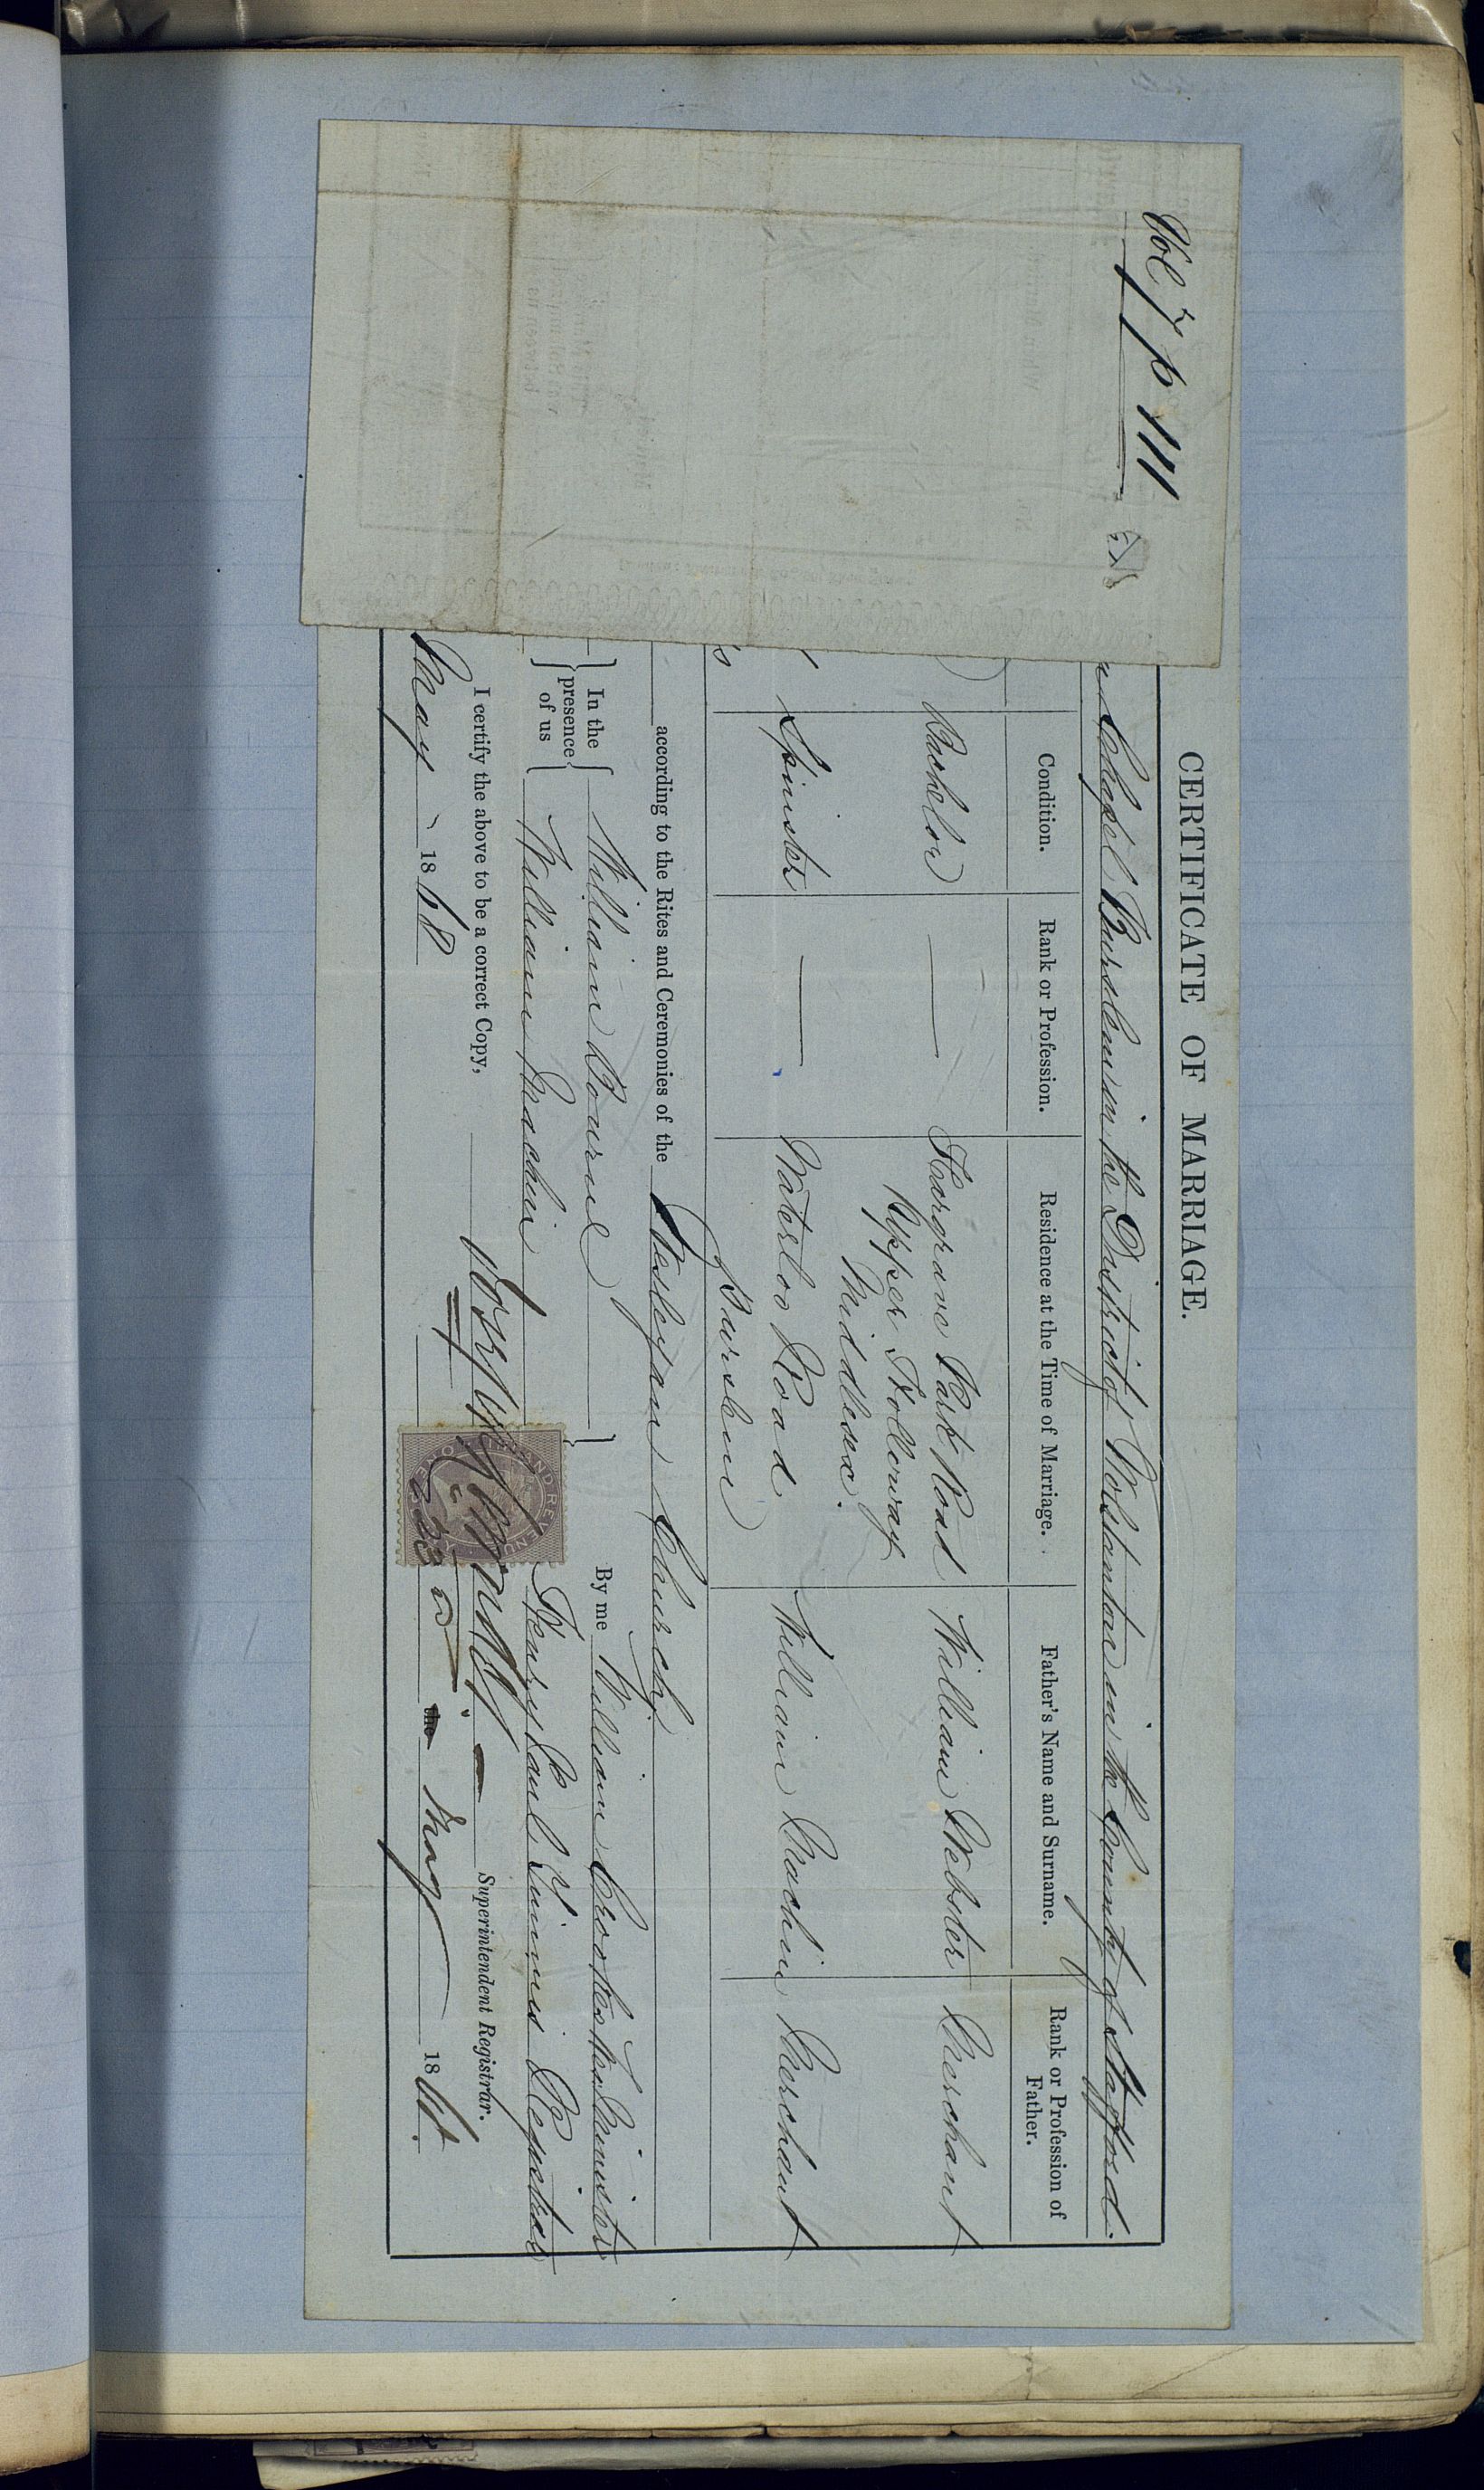 Vol 7 p 111
CERTIFICATE OF MARRIAGE.
Chapel Burslem in the District of Wolstanton in the County of Stafford
Condition. Rank or Profession. Residence at the Time of Marriage. Father's Name and Surname. Rank or Profession of Father.
Bachelor — Hargrave Park Road William Webster Merchant
Upper Holloway
Middlesex.
Spinster — Waterloo Road William Machin Merchant
Burslem
according to the Rites and Ceremonies of the Wesleyan Church
In the presence of us William Bourne By me William Crookes Minister
William Machin Henry Paul Registrar
I certify the above to be a correct Copy, Joseph Superintendent Registrar.
May 1868 the May 1868.